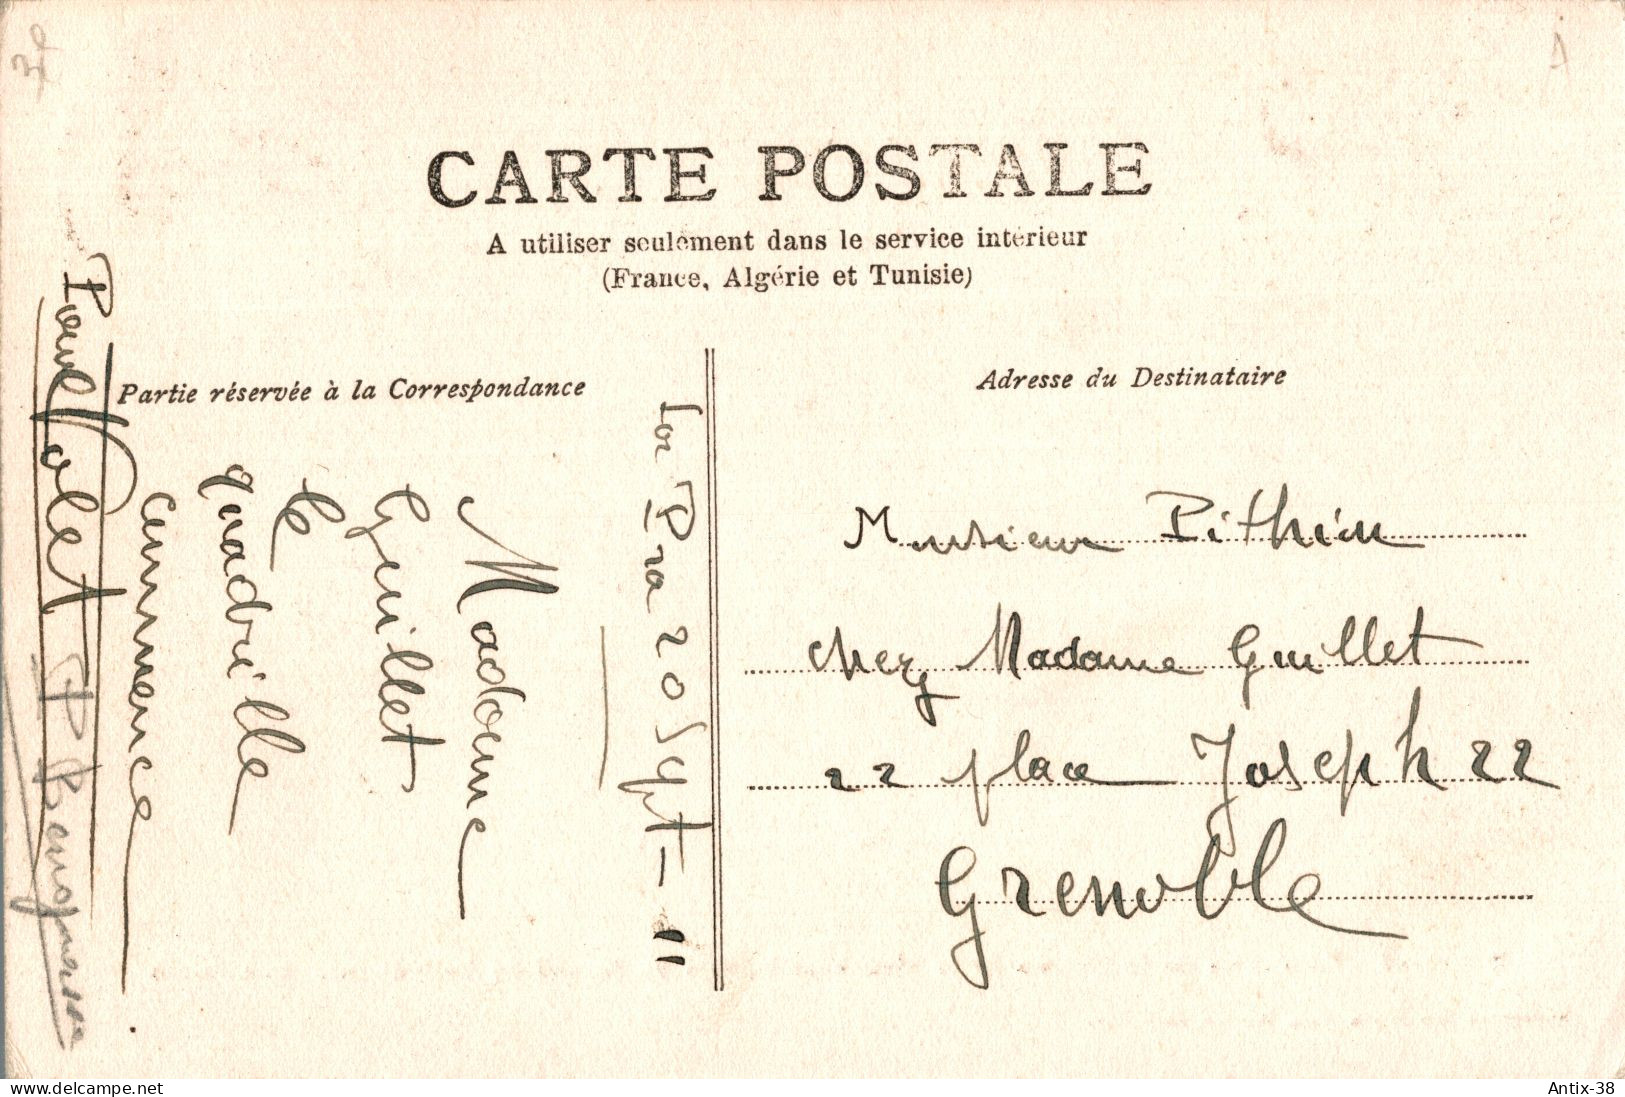 CARTE POSTALE
A utiliser seulement dans le service intérieur
(France, Algérie et Tunisie)
Partie réservée à la Correspondance
Pra 20 Sept - 11
Madame
Guillet
le
quadrille
commence
Paul Volet
P
Adresse du Destinataire
Monsieur Pithieu
chez Madame Guillet
22 place Joseph 22
Grenoble
delcampe.net
Antix-38